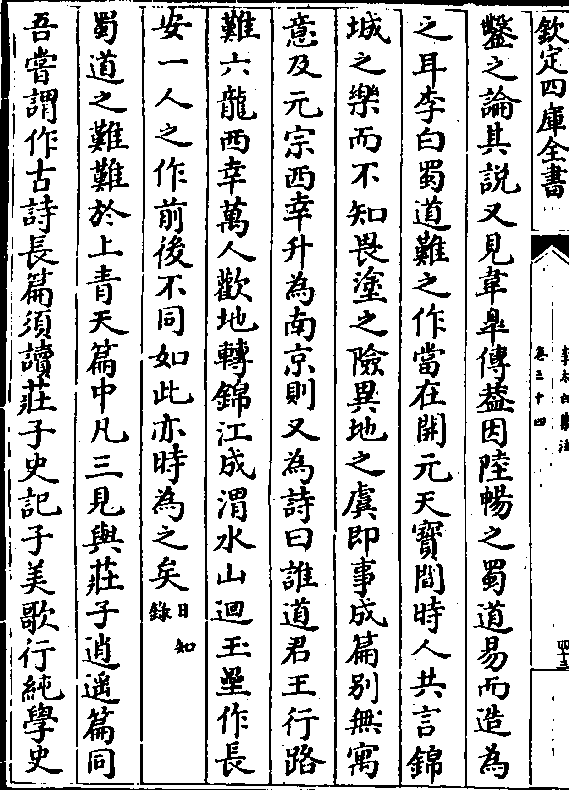 欽定四庫全書
李太白集注
卷三十四
鑿之論其說又見韋臯傳葢因陸暢之蜀道易而造為
之耳李白蜀道難之作當在開元天寶間時人共言錦
城之樂而不知畏塗之險異地之虞即事成篇别無寓
意及元宗西幸升為南京則又為詩曰誰道君王行路
難六龍西幸萬人歡地轉錦江成渭水山迴玉壘作長
安一人之作前後不同如此亦時為之矣日知錄
蜀道之難難於上青天篇中凡三見與莊子逍遙篇同
吾嘗謂作古詩長篇須讀莊子史記子美歌行純學史